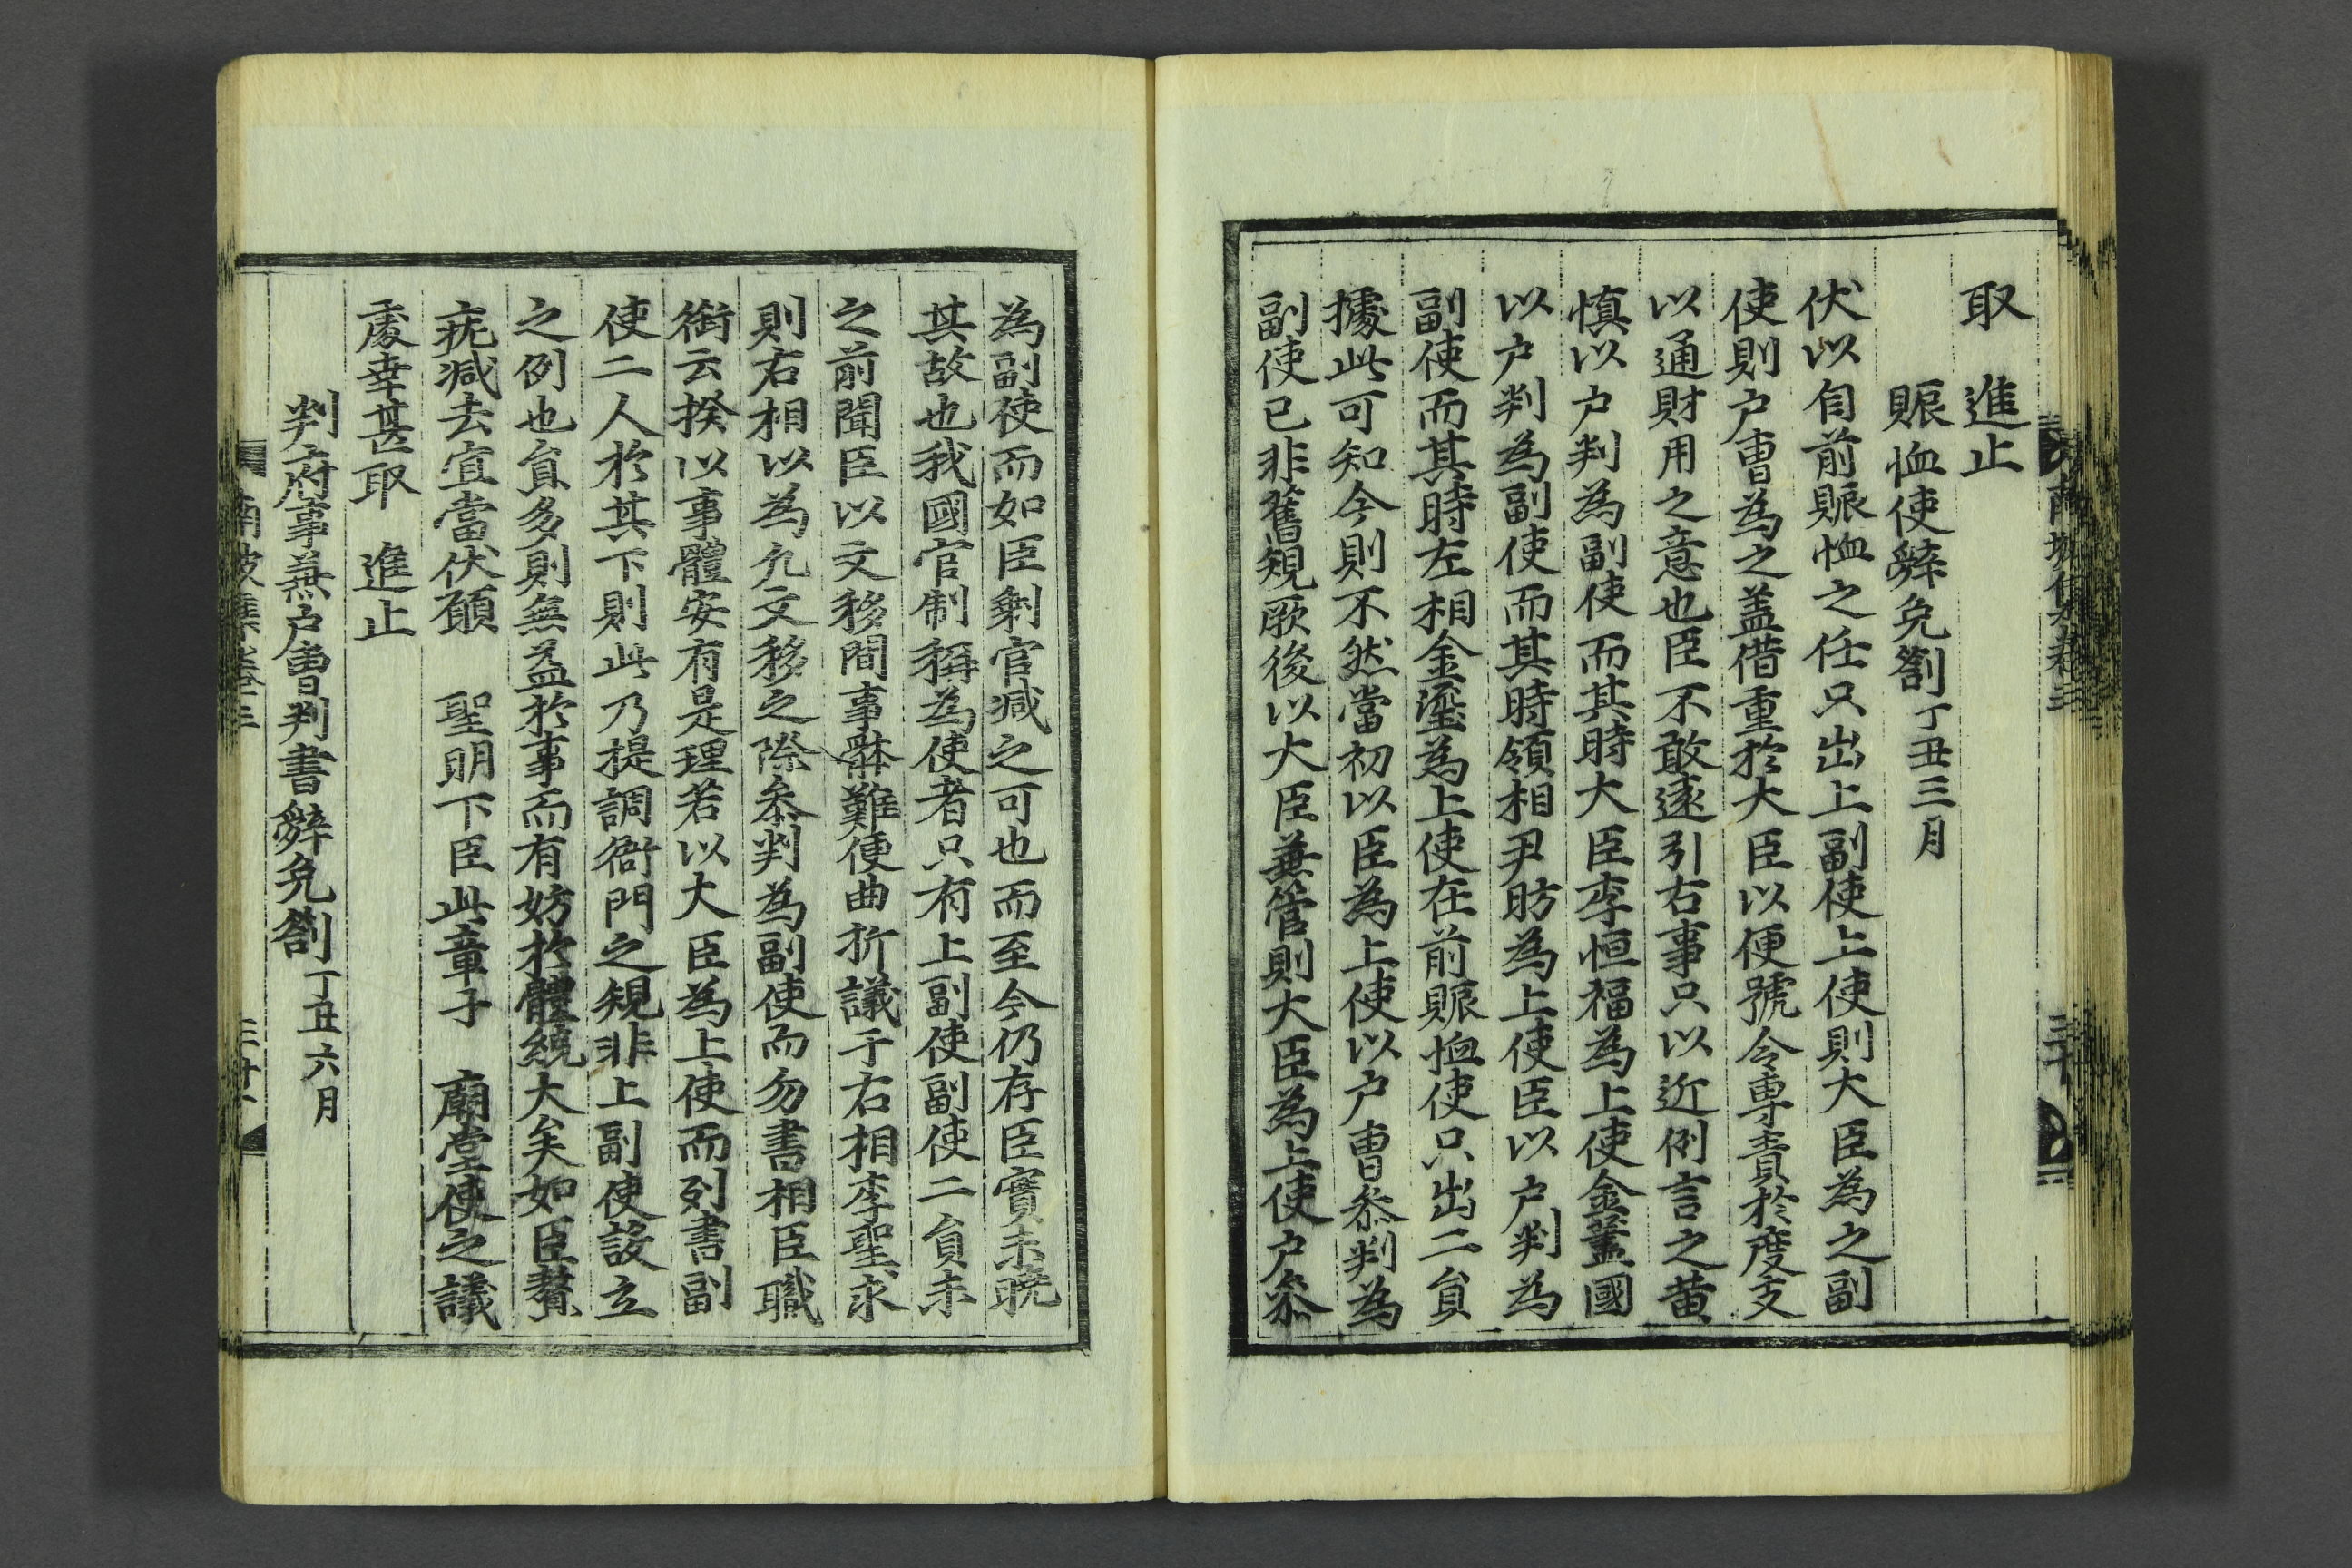 取　進止
賑恤使辭免箚 丁丑三月
伏以自前賑恤之任只出上副使上使則大臣為之副
使則户曺為之盖借重於大臣以便號令專責於度支
以通財用之意也臣不敢遠引古事只以近例言之黄
愼以户判為副使而其時大臣李恒福為上使金藎國
以户判為副使而其時領相尹昉為上使臣以户判為
副使而其時左相金瑬為上使在前賑恤使只出二貟
據此可知今則不然當初以臣為上使以户曺叅判為
副使已非舊規厥後以大臣兼管則大臣為上使户叅
為副使而如臣剩官减之可也而至今仍存臣實未曉
其故也我國官制稱為使者只有上副使副使二貟未
之前聞臣以文移間事軆難便曲折議于右相李聖求
則右相以為凢文移之際叅判為副使而勿書相臣職
銜云揆以事體安有是理若以大臣為上使而列書副
使二人於其下則此乃提調衙門之規非上副使設立
之例也貟多則無益於事而有妨於體統大矣如臣贅
疣减去宜當伏願　聖明下臣此章子　廟堂使之議
處幸甚取　進止
判府事兼户曺判書辭免箚 丁丑六月